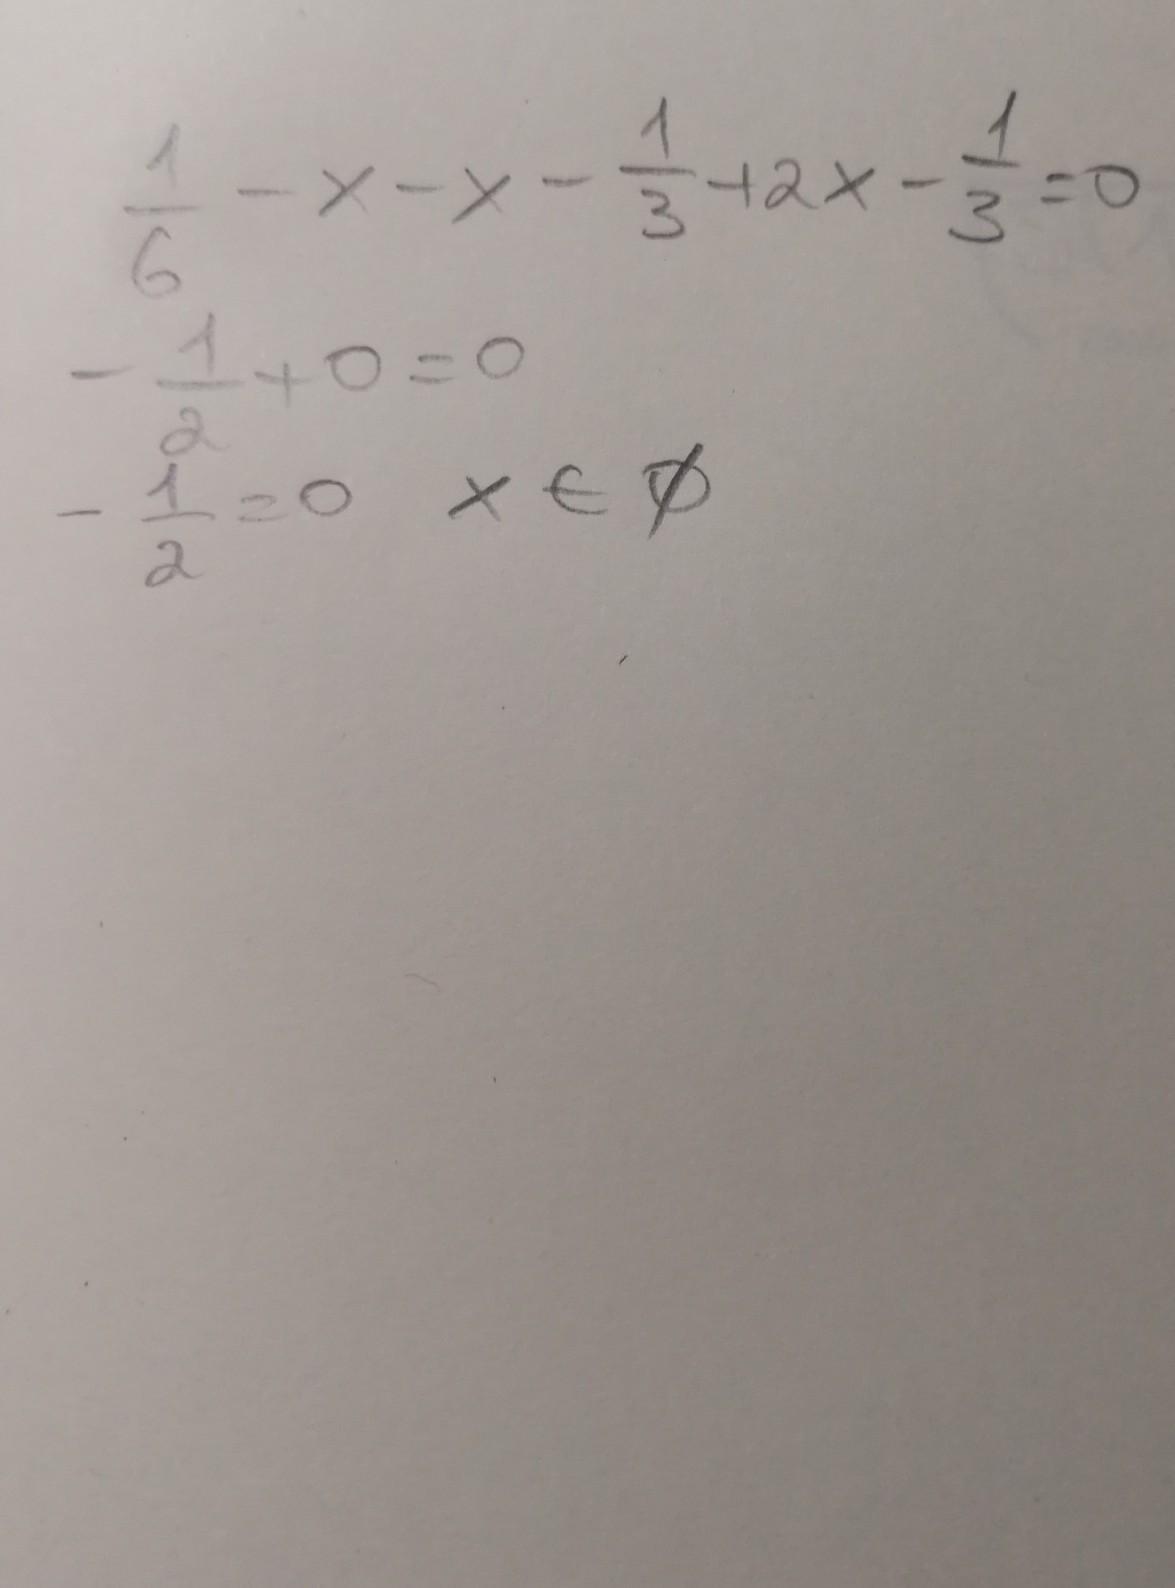 1/6 - x - x - 1/3 + 2x - 1/3 = 0
- 1/2 + 0 = 0
- 1/2 = 0 x ∈ ∅